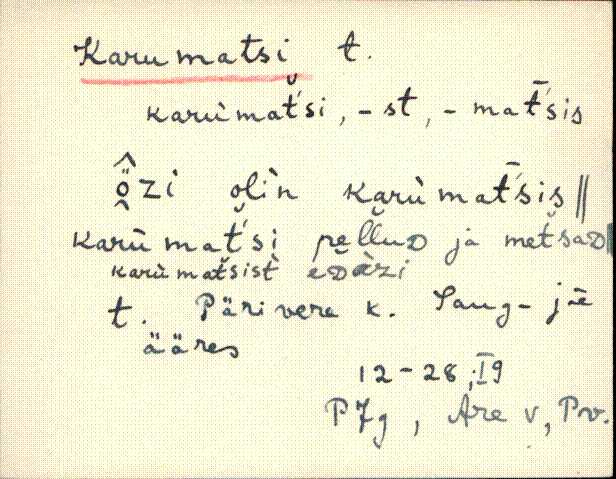 Karumatsi t.
karùmat̆śi, -st, -mat̄śis
ö̭̂zi olìn karùmat̄śis ||
karùmat̆śi pe̮lluD ja metsaD
karùmatsist eDàzi
t. Pärivere k. Saug- jõe
ääres
12-28, I9
PJg, Are v, Pv.